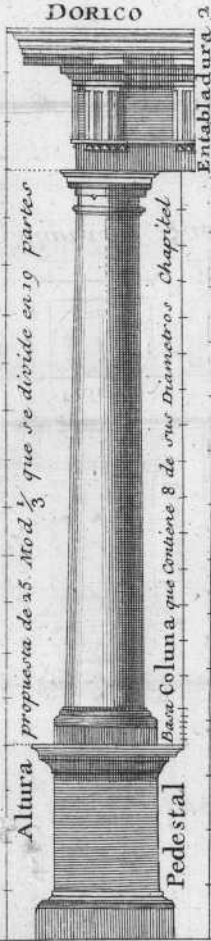 DORICO
Altura propuesta de 25. Mod ⅓ que se divide en 19 partes
Basa Coluna que Contiene 8 de sus Diametros Chapitel
Pedestal
Entabladura 2